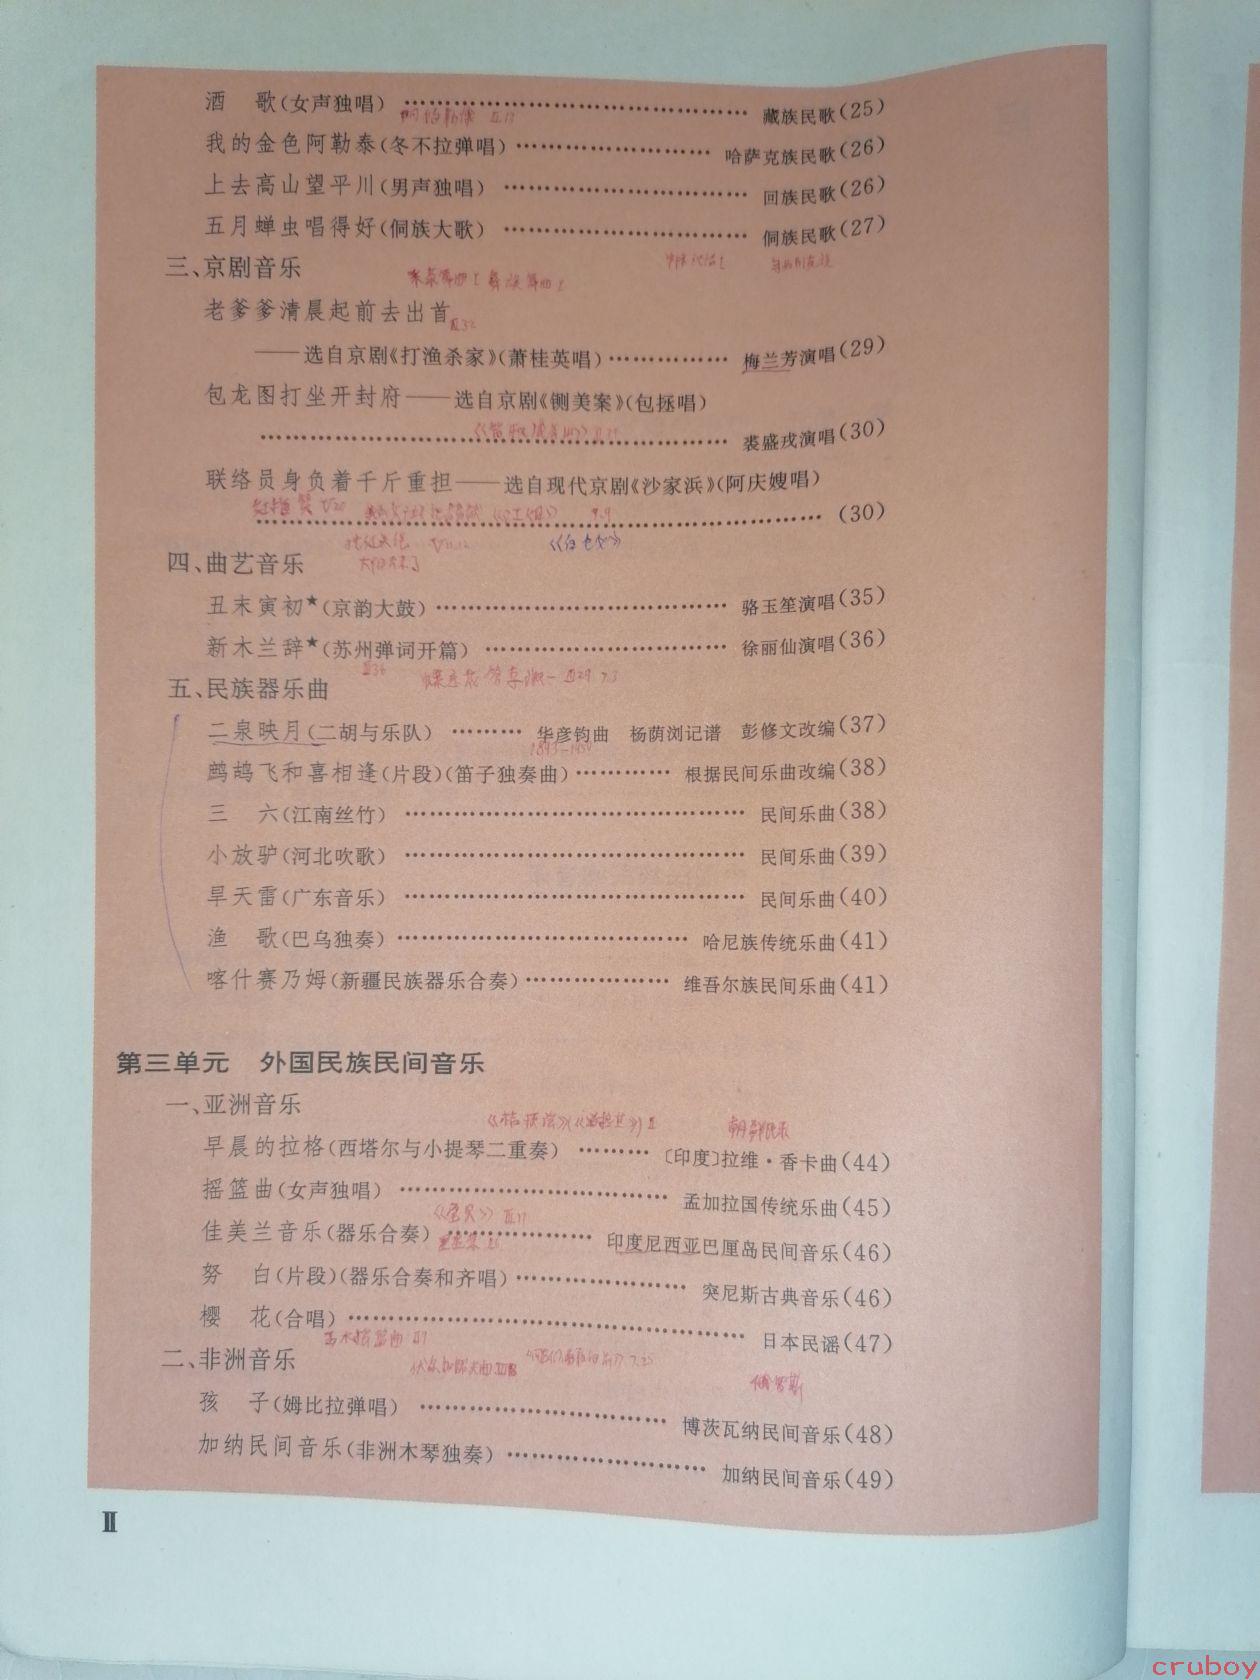 酒　歌(女声独唱) …… 藏族民歌(25)
我的金色阿勒泰(冬不拉弹唱) …… 哈萨克族民歌(26)
上去高山望平川(男声独唱) …… 回族民歌(26)
五月蝉虫唱得好(侗族大歌) …… 侗族民歌(27)
三、京剧音乐
老爹爹清晨起前去出首
——选自京剧《打渔杀家》(萧桂英唱) …… 梅兰芳演唱(29)
包龙图打坐开封府——选自京剧《铡美案》(包拯唱)
…… 裘盛戎演唱(30)
联络员身负着千斤重担——选自现代京剧《沙家浜》(阿庆嫂唱)
…… (30)
《白毛女》
四、曲艺音乐
丑末寅初★(京韵大鼓) …… 骆玉笙演唱(35)
新木兰辞★(苏州弹词开篇) …… 徐丽仙演唱(36)
五、民族器乐曲
二泉映月(二胡与乐队) …… 华彦钧曲　杨荫浏记谱　彭修文改编(37)
鹧鸪飞和喜相逢(片段)(笛子独奏曲) …… 根据民间乐曲改编(38)
三　六(江南丝竹) …… 民间乐曲(38)
小放驴(河北吹歌) …… 民间乐曲(39)
旱天雷(广东音乐) …… 民间乐曲(40)
渔　歌(巴乌独奏) …… 哈尼族传统乐曲(41)
喀什赛乃姆(新疆民族器乐合奏) …… 维吾尔族民间乐曲(41)
第三单元　外国民族民间音乐
一、亚洲音乐
早晨的拉格(西塔尔与小提琴二重奏) …… 〔印度〕拉维·香卡曲(44)
摇篮曲(女声独唱) …… 孟加拉国传统乐曲(45)
佳美兰音乐(器乐合奏) …… 印度尼西亚巴厘岛民间音乐(46)
努　白(片段)(器乐合奏和齐唱) …… 突尼斯古典音乐(46)
樱　花(合唱) …… 日本民谣(47)
二、非洲音乐
孩　子(姆比拉弹唱) …… 博茨瓦纳民间音乐(48)
加纳民间音乐(非洲木琴独奏) …… 加纳民间音乐(49)
Ⅱ
cruboy